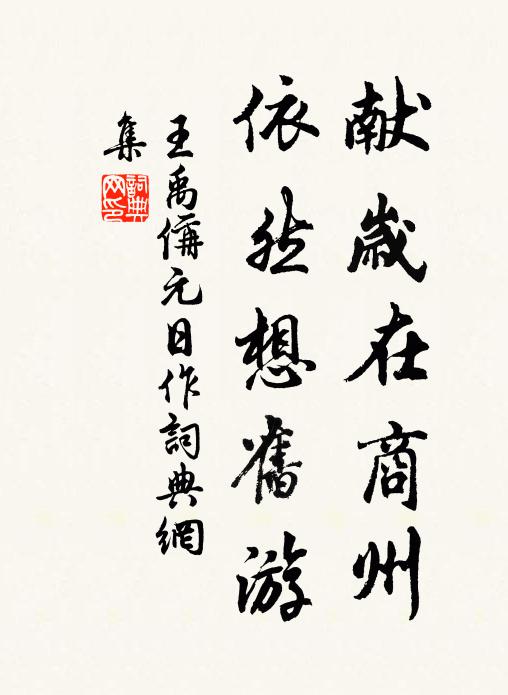 献歲在商州
依然想舊游
王禹偁元日作詞典網
集
詞典
网印